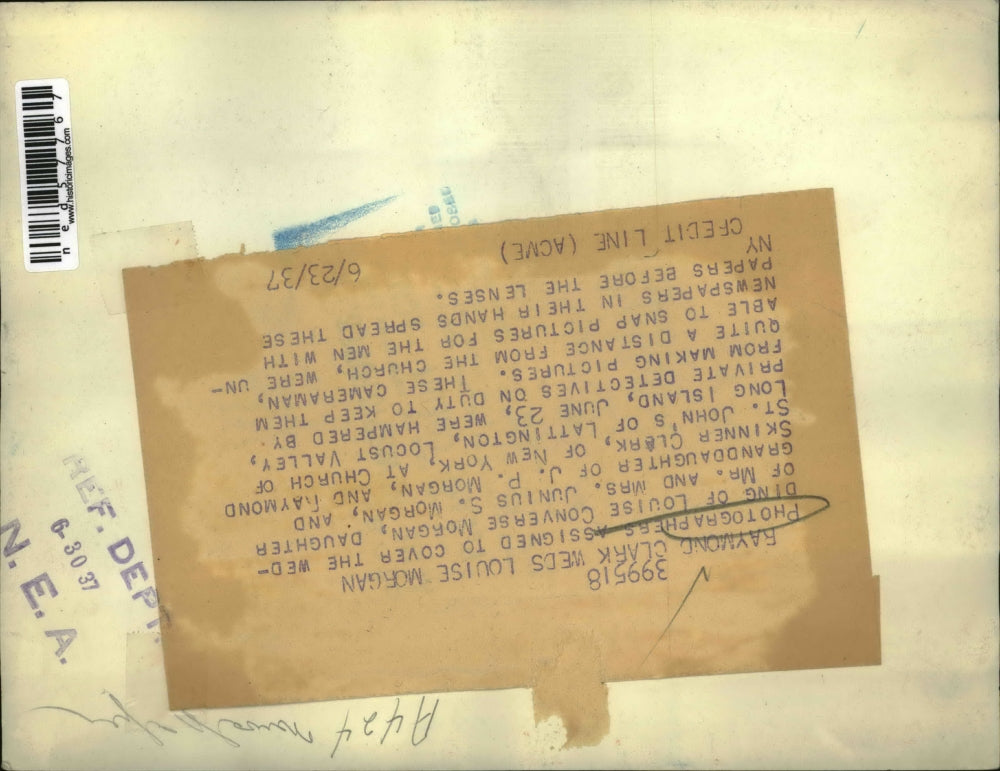 399518
RAYMOND CLARK WEDS LOUISE MORGAN
PHOTOGRAPHERS ASSIGNED TO COVER THE WED-
DING OF LOUISE CONVERSE MORGAN, DAUGHTER
OF MR. AND MRS. JUNIUS S. MORGAN, AND
GRANDDAUGHTER OF J. P. MORGAN, AND RAYMOND
SKINNER CLARK, OF NEW YORK, AT CHURCH OF
ST. JOHN'S OF LATTINGTON, LOCUST VALLEY,
LONG ISLAND, JUNE 23, WERE HAMPERED BY
PRIVATE DETECTIVES ON DUTY TO KEEP THEM
FROM MAKING PICTURES. THESE CAMERAMAN,
QUITE A DISTANCE FROM THE CHURCH, WERE UN-
ABLE TO SNAP PICTURES FOR THE MEN WITH
NEWSPAPERS IN THEIR HANDS SPREAD THESE
PAPERS BEFORE THE LENSES.
NY
CREDIT LINE (ACME) 6/23/37
REF. DEPT.
6-30 37
N. E. A.
A424
www.historicimages.com